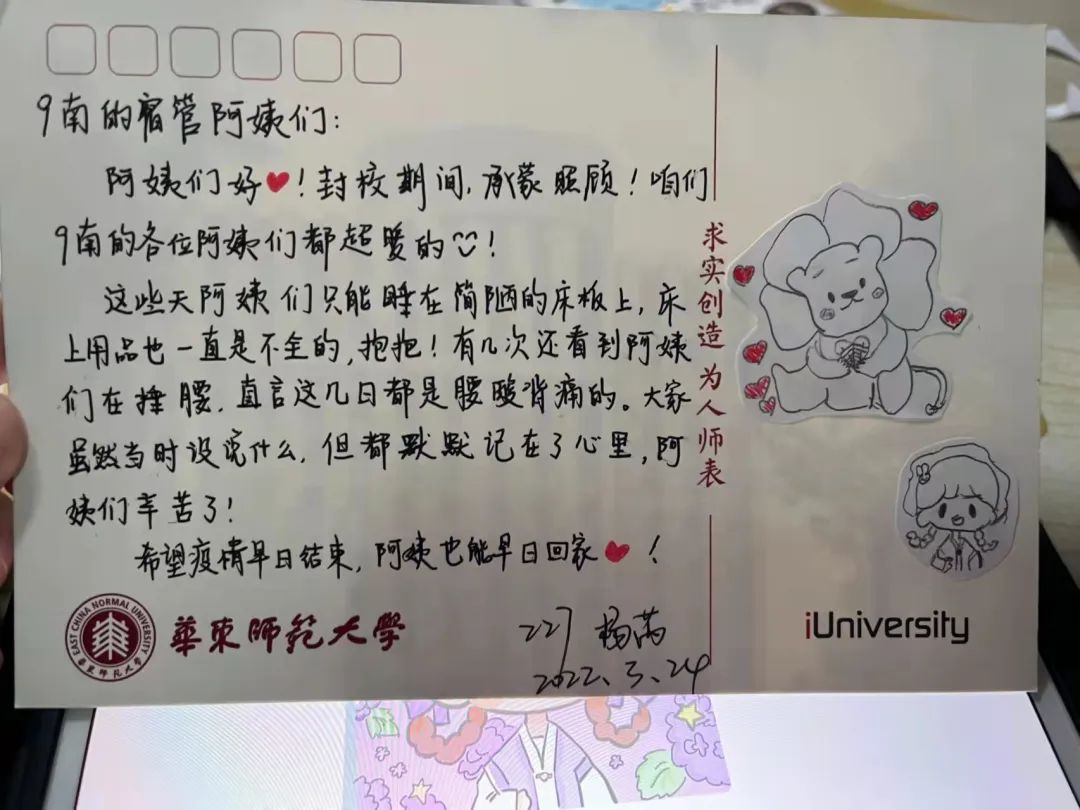 9南的宿管阿姨们：
阿姨们好❤！封校期间，承蒙照顾！咱们
9南的各位阿姨们都超暖的！
这些天阿姨们只能睡在简陋的床板上，床
上用品也一直是不全的，抱抱！有几次还看到阿姨
们在捶腰，直言这几日都是腰酸背痛的。大家
虽然当时没说什么，但都默默记在了心里，阿
姨们辛苦了！
希望疫情早日结束，阿姨也能早日回家❤！
227 杨
2022.3.24
求实创造 为人师表
EAST CHINA NORMAL UNIVERSITY
华东师范大学
華東師範大學
iUniversity